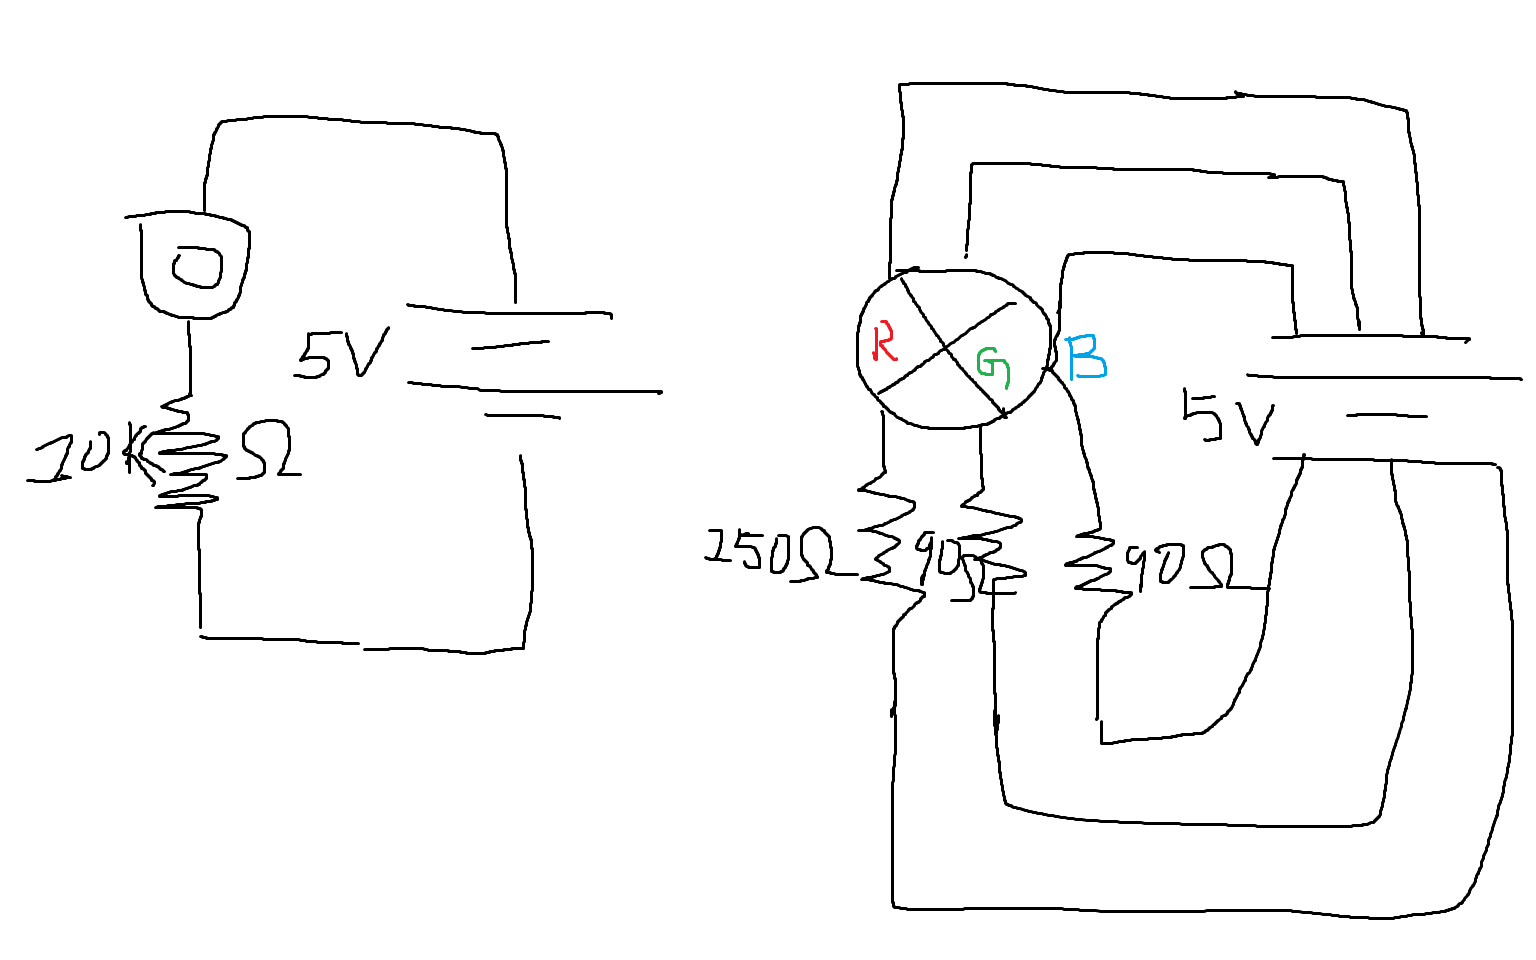 5V
10KΩ
R
G
B
5V
150Ω
90Ω
90Ω